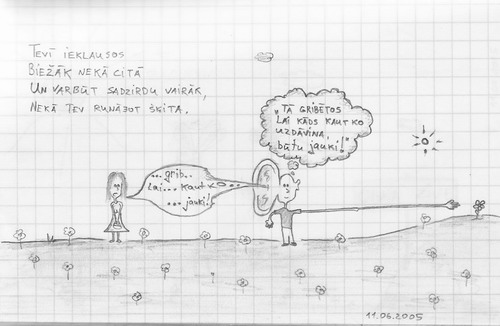 Tevī ieklausos
Biežāk nekā citā
Un varbūt sadzirdu vairāk,
Nekā tev runājot šķita.
„Tā gribētos
lai kāds kaut ko
uzdāvina,
būtu jauki!"
...grib..
lai... kaut ko...
...jauki!
11.06.2005